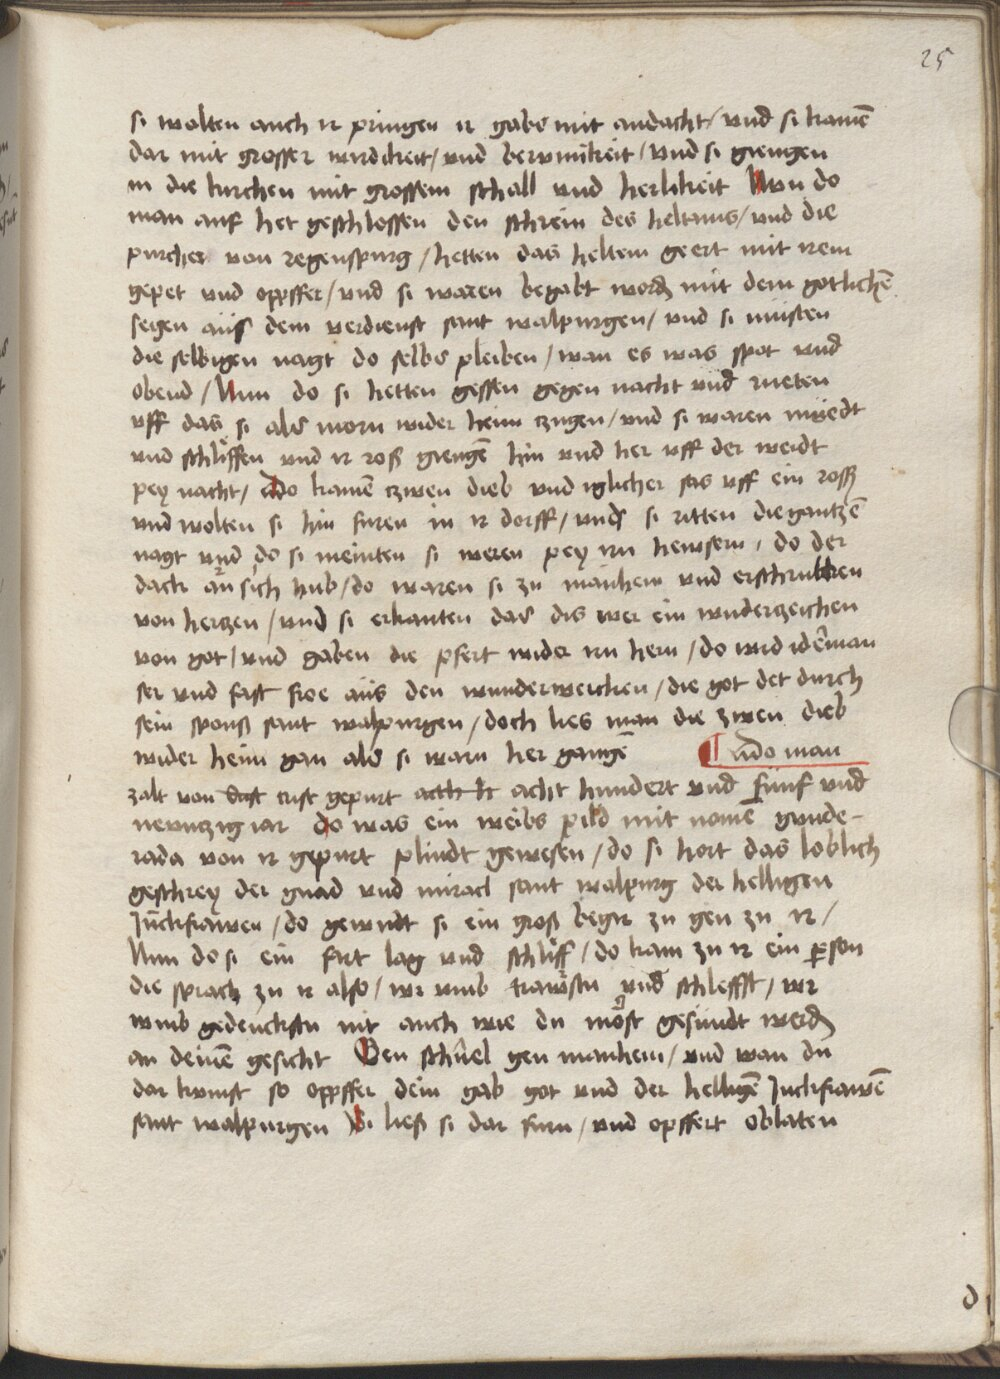 25
si wolten auch ir pringen ir gabe mit andacht / vnd si kamē
dar mit grosser wirdikeit / vnd berumikeit / vnd si giengen
in die kirchen mit grossem schall vnd herlikeit Nun do
man auf het geschlossen den schrein des heltums / vnd die
purcher von regenspurg / hetten das heltem geert mit irem
gepet vnd oppffer / vnd si waren begabt word mit dem gotlichē
segen aüs dem verdienst sant walpurgen / vnd si müsten
die selbigen nagt do selbs pleiben / wan es was spot vnd
obend / Nun do si hetten gessen gegen nacht vnd rueten
vff das si als morn wider heim czugen / vnd si waren müedt
vnd schliffen vnd ir roß giengē hin vnd her vff der weidt
pey nacht / Do kamē czwen dieb vnd iglicher sas vff ein roß
vnd wolten si hin furen in ir dorff / vnd si ritten die gantzē
nagt vnd do si meinten si weren pey irn hewsern / do der
dack an sich hub / do waren si zu manhem vnd erschricken
von hertzen / vnd si erkanten das dis wer ein wnderzeichen
von got / vnd gaben die pfert wider irn hern / do wird idērman
ser vnd fast froe aüs den wunderwercken / die got det durch
sein sponß sant walpurgen / doch lies man die zwen dieb
wider heim gan als si warn her gangē Vndo man
zalt von crist gepurt acht hundert vnd fünf vnd
newnczig iar do was ein weibs pild mit nomē gunde-
rada von ir gepurt plindt gewesen / do si hort das loblich
geschrey der gnad vnd miracl sant walpurg der helligen
Junckfrawen / do gewndt si ein groß begir zu gen zu ir /
Nun do si ein fart lag vnd schliff / do kam zu ir ein person
die sprach zu ir also / wr vmb trawrstu vnd schleffst / wr
wmb gedenckstu nit auch wie du möst gesundt werd
an deinē gesicht Den schnel gen manhem / vnd wan du
dar kumst so oppffer dein gab got vnd der helligē Junckfrawē
sant walpurgen Si ließ si dar furn / vnd opffert oblaten
d